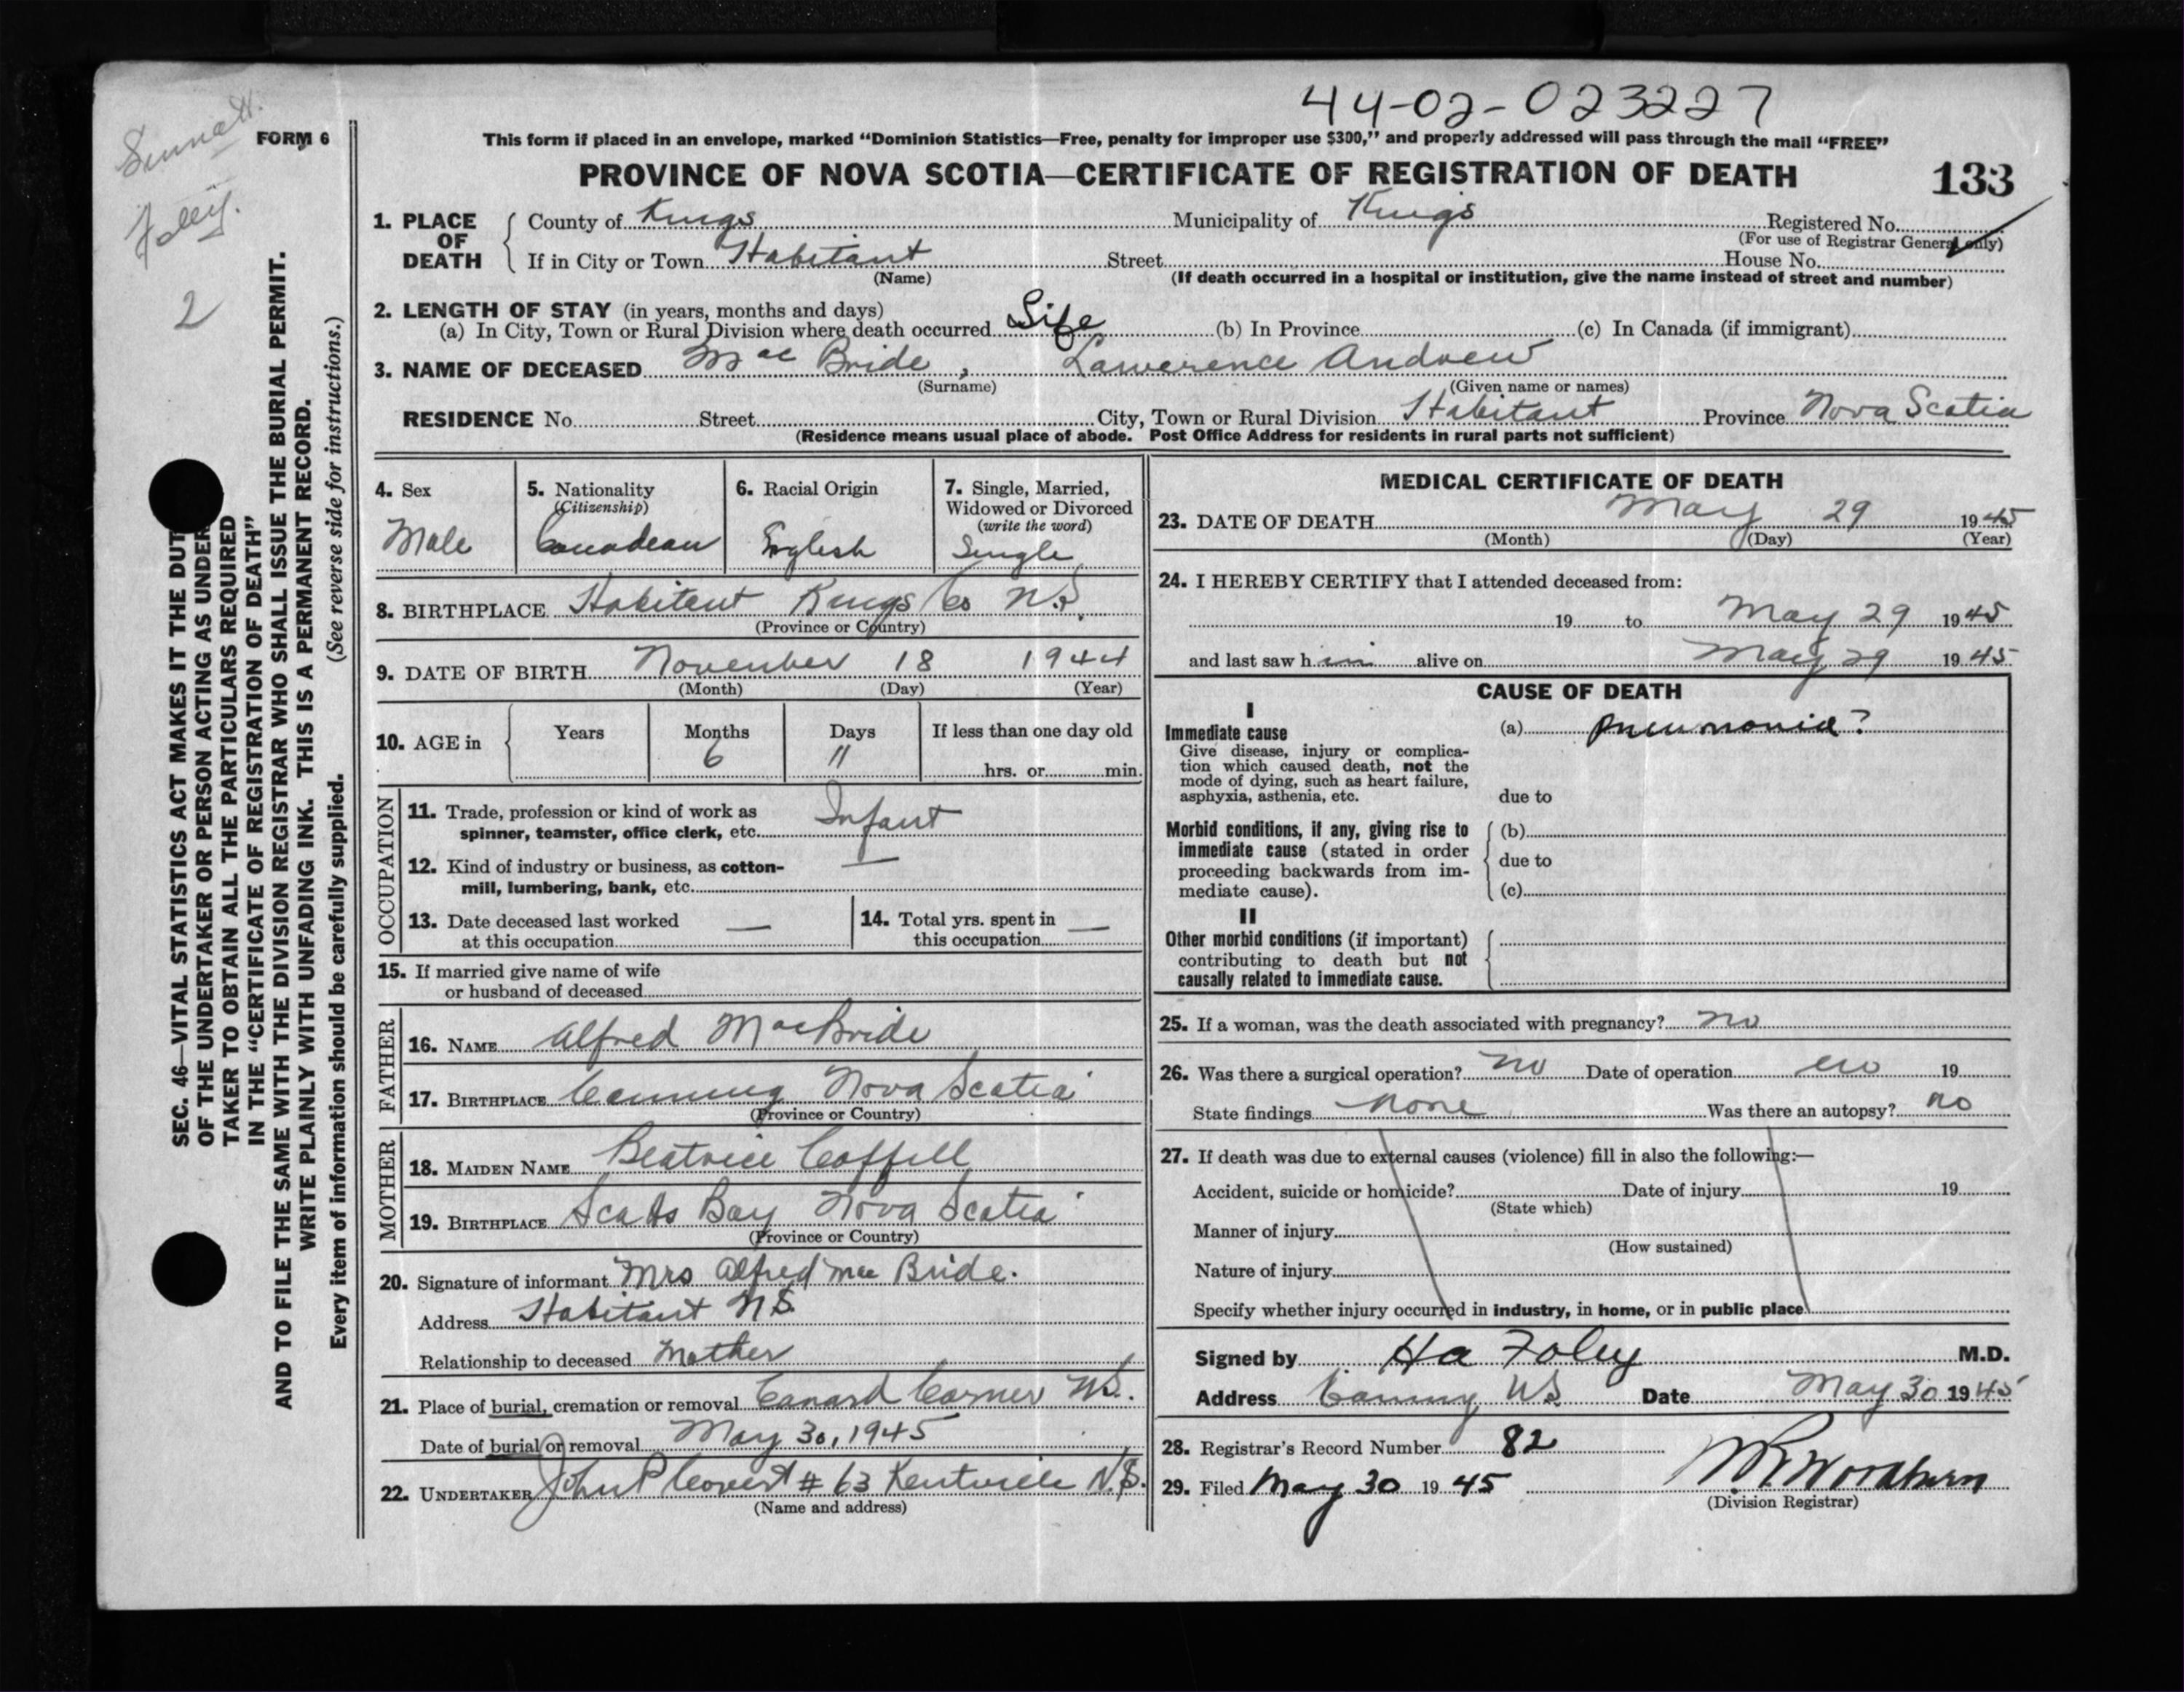 44-02-023227
Foley.
2
FORM 6
This form if placed in an envelope, marked “Dominion Statistics—Free, penalty for improper use $300,” and properly addressed will pass through the mail “FREE”
PROVINCE OF NOVA SCOTIA—CERTIFICATE OF REGISTRATION OF DEATH 133
1. PLACE OF DEATH
County of Kings Municipality of Kings Registered No.
(For use of Registrar General only)
If in City or Town Habitant Street House No.
(Name) (If death occurred in a hospital or institution, give the name instead of street and number)
2. LENGTH OF STAY (in years, months and days)
(a) In City, Town or Rural Division where death occurred Life (b) In Province (c) In Canada (if immigrant)
3. NAME OF DECEASED Mac Bride, Lawerence Andrew
(Surname) (Given name or names)
RESIDENCE No. Street City, Town or Rural Division Habitant Province Nova Scotia
(Residence means usual place of abode. Post Office Address for residents in rural parts not sufficient)
4. Sex
Male
5. Nationality
(Citizenship)
Canadean
6. Racial Origin
English
7. Single, Married,
Widowed or Divorced
(write the word)
Single
8. BIRTHPLACE Habitant Kings Co N.S.
(Province or Country)
9. DATE OF BIRTH November 18 1944
(Month) (Day) (Year)
10. AGE in Years Months Days If less than one day old
6 11
hrs. or min.
OCCUPATION
11. Trade, profession or kind of work as Infant
spinner, teamster, office clerk, etc.
12. Kind of industry or business, as cotton- —
mill, lumbering, bank, etc.
13. Date deceased last worked —
at this occupation
14. Total yrs. spent in —
this occupation
15. If married give name of wife
or husband of deceased
FATHER
16. NAME Alfred MacBride
17. BIRTHPLACE Canning Nova Scotia
(Province or Country)
MOTHER
18. MAIDEN NAME Beatrice Coffill
19. BIRTHPLACE Scots Bay Nova Scotia
(Province or Country)
20. Signature of informant Mrs Alfred Mac Bride.
Address Habitant N.S.
Relationship to deceased Mother
21. Place of burial, cremation or removal Canard Corner N.S.
Date of burial or removal May 30, 1945
22. UNDERTAKER John P Covert # 63 Kentville N.S.
(Name and address)
MEDICAL CERTIFICATE OF DEATH
23. DATE OF DEATH May 29 1945
(Month) (Day) (Year)
24. I HEREBY CERTIFY that I attended deceased from:
19 to May 29 1945
and last saw h im alive on May 29 1945
CAUSE OF DEATH
I
Immediate cause
Give disease, injury or complica-
tion which caused death, not the
mode of dying, such as heart failure,
asphyxia, asthenia, etc.
(a) Pneumonia?
due to
Morbid conditions, if any, giving rise to
immediate cause (stated in order
proceeding backwards from im-
mediate cause).
(b)
due to
(c)
II
Other morbid conditions (if important)
contributing to death but not
causally related to immediate cause.
25. If a woman, was the death associated with pregnancy? no
26. Was there a surgical operation? no Date of operation no 19
State findings none Was there an autopsy? no
27. If death was due to external causes (violence) fill in also the following:—
Accident, suicide or homicide? Date of injury 19
(State which)
Manner of injury
(How sustained)
Nature of injury
Specify whether injury occurred in industry, in home, or in public place
Signed by Ha Foley M.D.
Address Canning NS Date May 30 1945
28. Registrar's Record Number 82
29. Filed May 30 1945 Woodburn
(Division Registrar)
SEC. 46—VITAL STATISTICS ACT MAKES IT THE DUT
OF THE UNDERTAKER OR PERSON ACTING AS UNDER
TAKER TO OBTAIN ALL THE PARTICULARS REQUIRED
IN THE “CERTIFICATE OF REGISTRATION OF DEATH”
AND TO FILE THE SAME WITH THE DIVISION REGISTRAR WHO SHALL ISSUE THE BURIAL PERMIT.
WRITE PLAINLY WITH UNFADING INK. THIS IS A PERMANENT RECORD.
Every item of information should be carefully supplied. (See reverse side for instructions.)